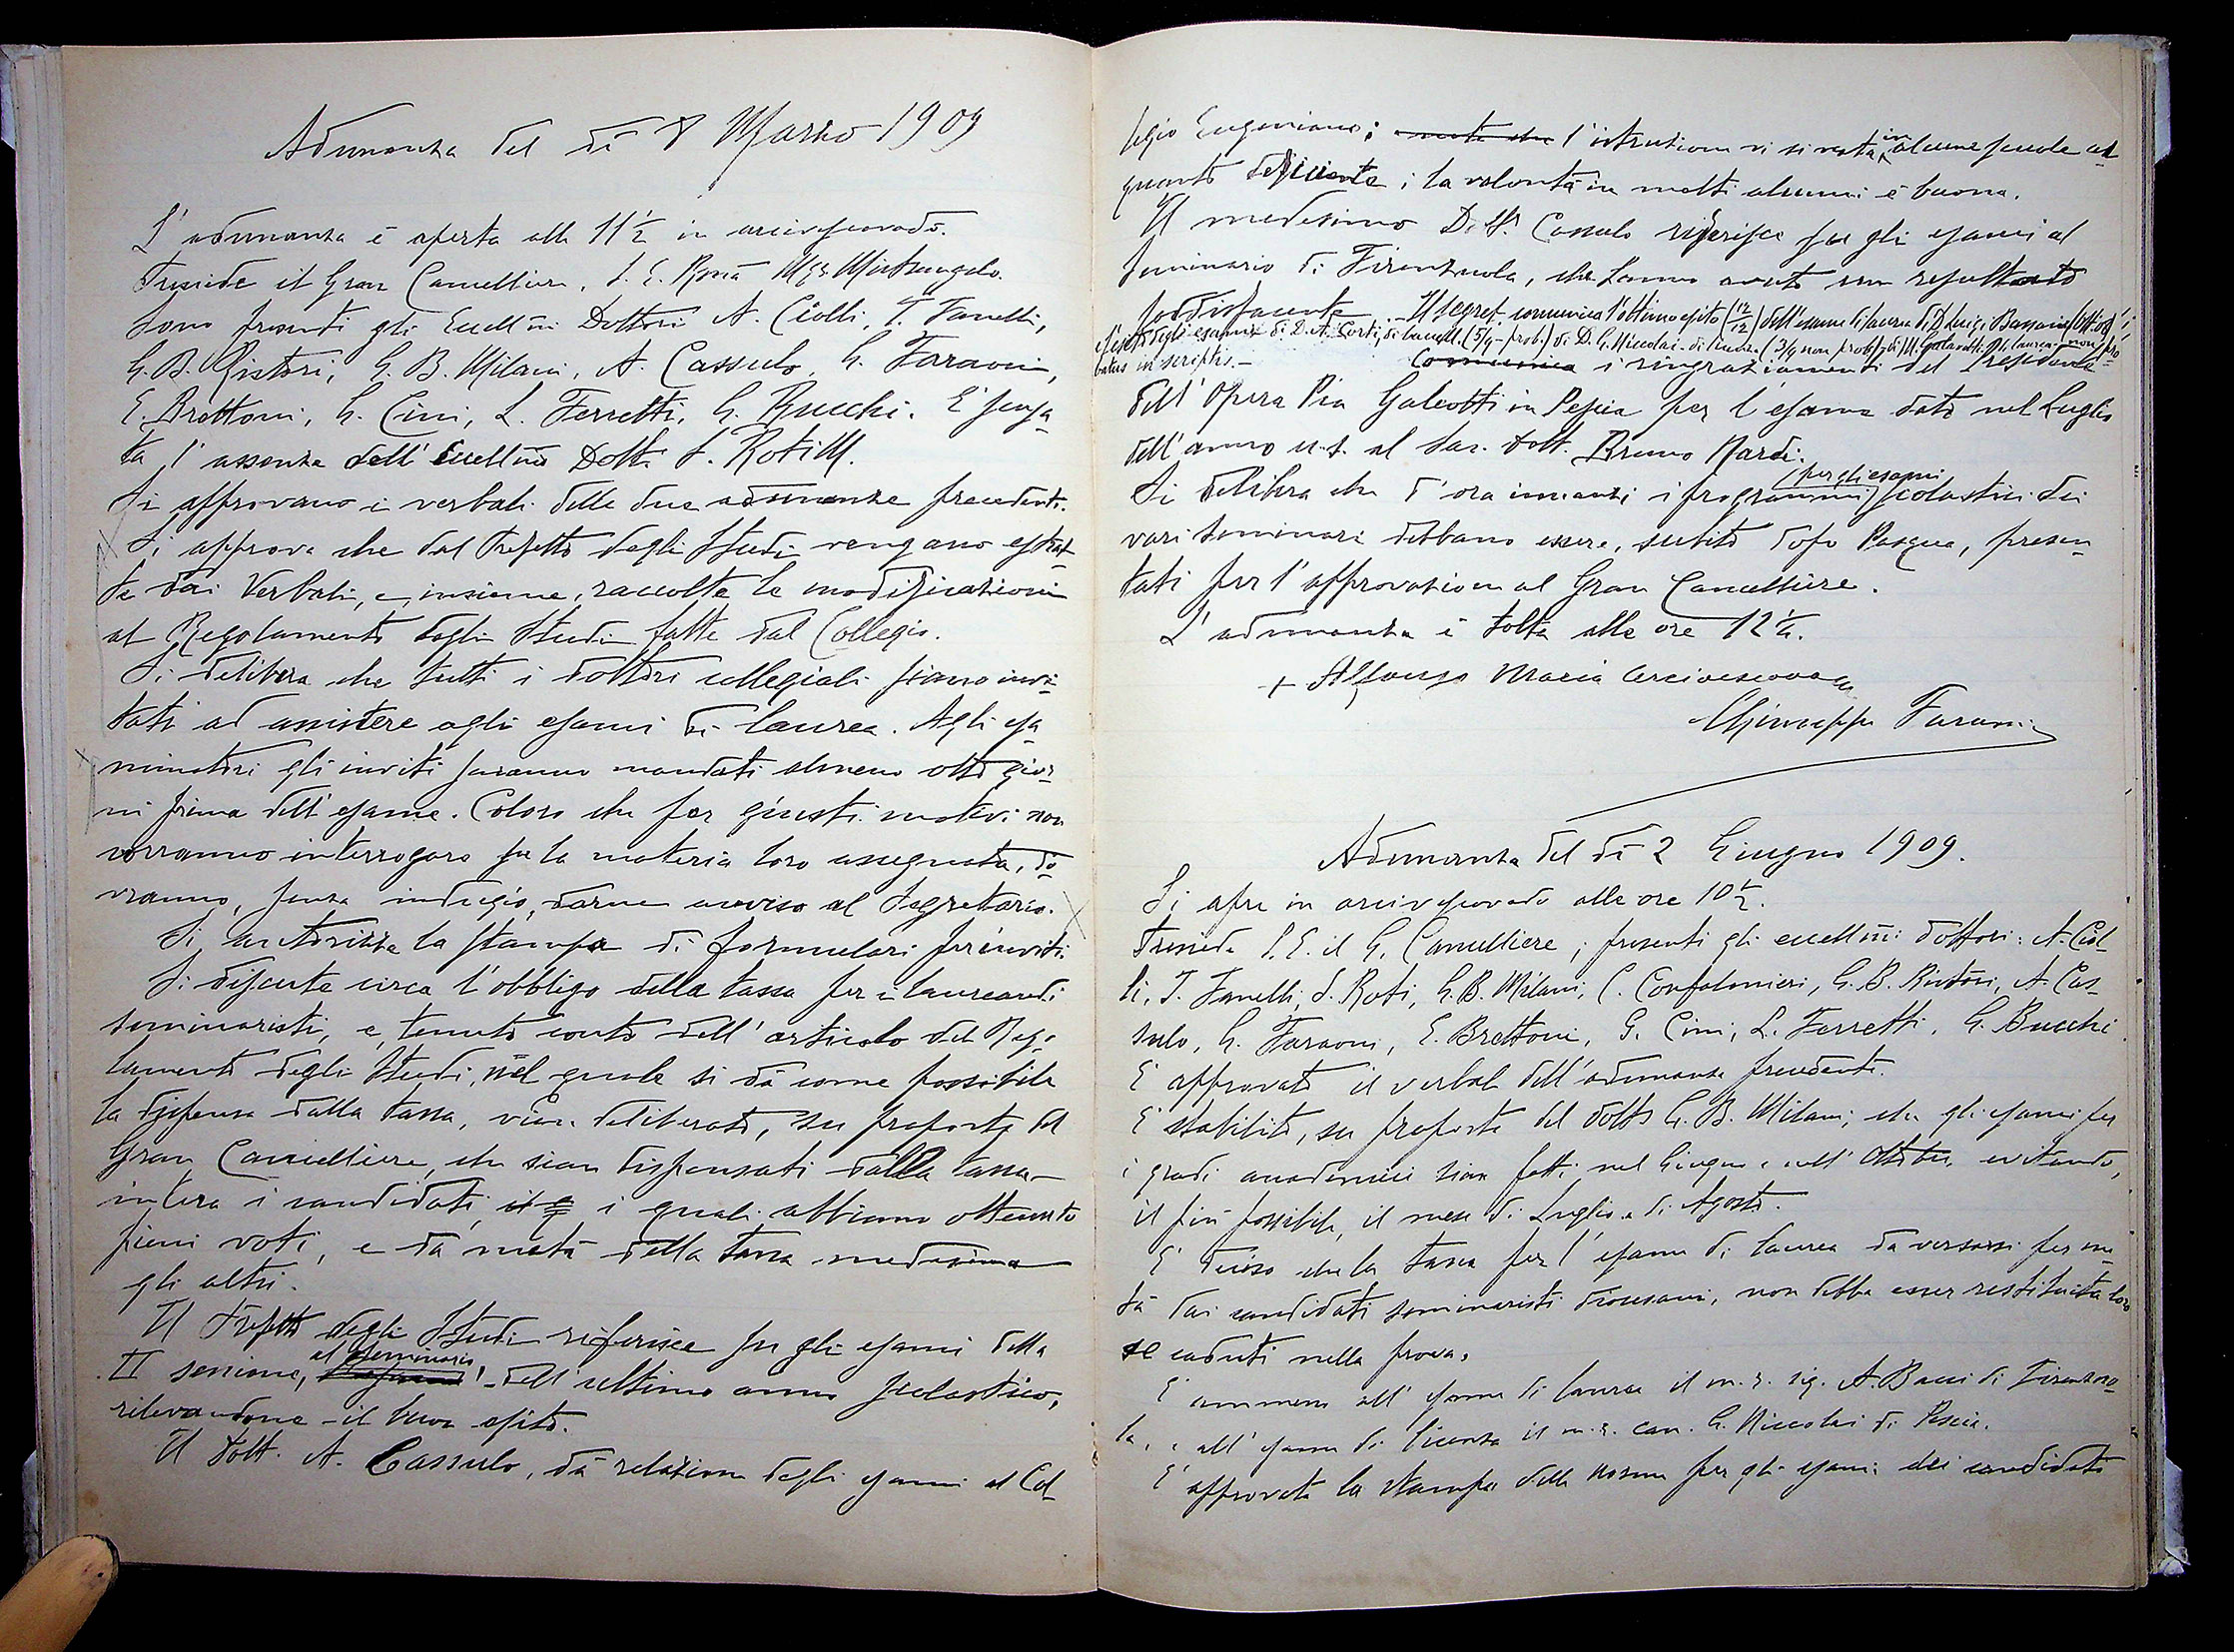 Adunanza del dì 8 Marzo 1909
L'adunanza è aperta alle 11½ in arcivescovado.
Presiede il Gran Cancelliere, S. E. Rma Mgr. Mistrangelo.
Sono presenti gli Eccellmi Dottori A. Ciolli, T. Fanelli,
G. B. Ristori, G. B. Milani, A. Cassulo, G. Faraoni,
E. Brettoni, G. Cini, L. Ferretti, G. Bucchi. E' scusa-
ta l'assenza dell'Eccellmo Dott. S. Roti M.
Si approvano i verbali delle due adunanze precedenti.
Si approva che dal Prefetto degli Studi vengano estrat-
te dai Verbali, e, insieme, raccolte le modificazioni
al Regolamento degli Studi fatte dal Collegio.
Si delibera che tutti i dottori collegiali siano invi-
tati ad assistere agli esami di laurea. Agli esa-
minatori gli inviti saranno mandati almeno otto gior-
ni prima dell'esame. Coloro che per giusti motivi non
vorranno interrogare su la materia loro assegnata, do-
vranno, senza indugio, darne avviso al Segretario.
Si autorizza la stampa di formulari per inviti.
Si discute circa l'obbligo della tassa per i laureandi
seminaristi, e, tenuto conto dell'articolo del Rego-
lamento degli Studi, nel quale si dà come possibile
la dispensa dalla tassa, vien deliberato, su proposta del
Gran Cancelliere, che sian dispensati dalla tassa
intera i candidati i quali abbiano ottenuto
pieni voti, e da metà della tassa medesima
gli altri.
Il Prefetto degli Studi riferisce su gli esami della
II sessione, al Seminario, dell'ultimo anno scolastico,
rilevandone il buon esito.
Il Dott. A. Cassulo, dà relazione degli esami al Col-
legio Eugeniano; l'istruzione vi si nota in alcune scuole al-
quanto deficiente; la volontà in molti alunni è buona.
Il medesimo Dott. Cassulo riferisce su gli esami al
Seminario di Firenzuola, che hanno avuto un resultato
soddisfacente. - Il segret. comunica l'ottimo esito (12/12) dell'esame di laurea di D. Luigi Bassoni
l'esito degli esami: di D. A. Corti, di baccell. (5/9 - prob.) di D. G. Niccolai - di licenza (3/9 non prob.) di M. Galeotti di laurea - non pro-
batus in scriptis. -
Comunica i ringraziamenti del Presidente
dell'Opera Pia Galeotti in Pescia per l'esame dato nel Luglio
dell'anno u. s. al Sac. Dott. Bruno Nardi.
Si delibera che d'ora innanzi i programmi per gli esami scolastici dei
vari seminari debbano essere, subito dopo Pasqua, presen-
tati per l'approvazione al Gran Cancelliere.
L'adunanza è tolta alle ore 12¼.
+ Alfonso Maria Arcivescovo
Giuseppe Faraoni
Adunanza del dì 2 Giugno 1909.
Si apre in arcivescovado alle ore 10½.
Presiede S. E. il G. Cancelliere; presenti gli eccellmi dottori: A. Ciol-
li, T. Fanelli, S. Roti, G. B. Milani, C. Confalonieri, G. B. Ristori, A. Cas-
sulo, G. Faraoni, E. Brettoni, G. Cini, L. Ferretti, G. Bucchi
E' approvato il verbale dell'adunanza precedente.
E' stabilito, su proposta del dott. G. B. Milani, che gli esami per
i gradi accademici sian fatti nel Giugno e nell'Ottobre, evitando,
il più possibile, il mese di Luglio e di Agosto.
E' deciso che la tassa per l'esame di laurea da versarsi per me-
tà dai candidati seminaristi diocesani, non debba esser restituita loro
se caduti nella prova.
E' ammesso all'esame di laurea il m. r. sig. A. Bacci di Firenzuo-
la, e all'esame di licenza il m. r. can. G. Niccolai di Pescia.
E' approvata la stampa delle norme per gli esami dei candidati